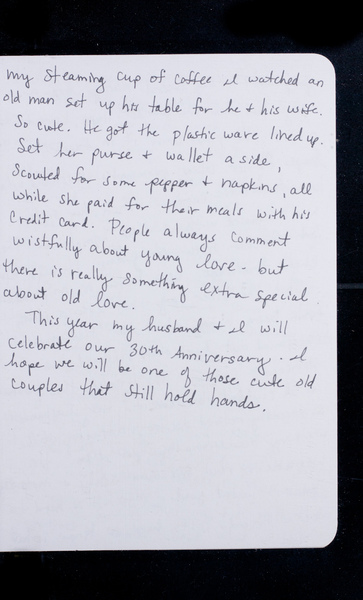 my steaming cup of coffee I watched an
old man set up his table for he & his wife.
So cute. He got the plastic ware lined up.
Set her purse & wallet a side,
Scouted for some pepper & napkins, all
while she paid for their meals with his
Credit card. People always comment
wistfully about young love - but
there is really something extra special
about old love.
This year my husband & I will
celebrate our 30th Anniversary. I
hope we will be one of those cute old
couples that still hold hands.